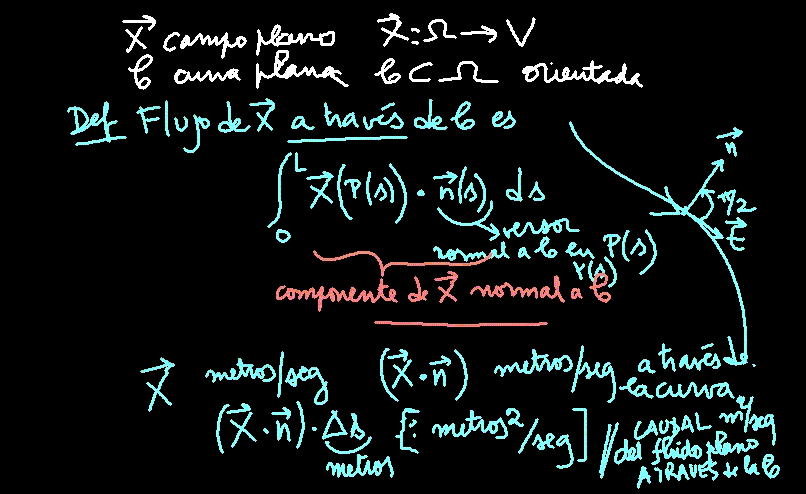 X⃗ campo plano X⃗: Ω → V
𝒞 curva plana 𝒞 ⊂ Ω orientada
Def Flujo de X⃗ a través de 𝒞 es
∫₀ᴸ X⃗(P(s)) · n⃗(s) ds
versor
normal a 𝒞 en P(s)
r(s)
componente de X⃗ normal a 𝒞
n⃗
π/2
t⃗
X⃗ metros/seg (X⃗ · n⃗) metros/seg a través de
la curva
(X⃗ · n⃗) · Δs [: metros²/seg] // CAUSAL m²/seg
metros
del fluido plano
A TRAVES de la 𝒞